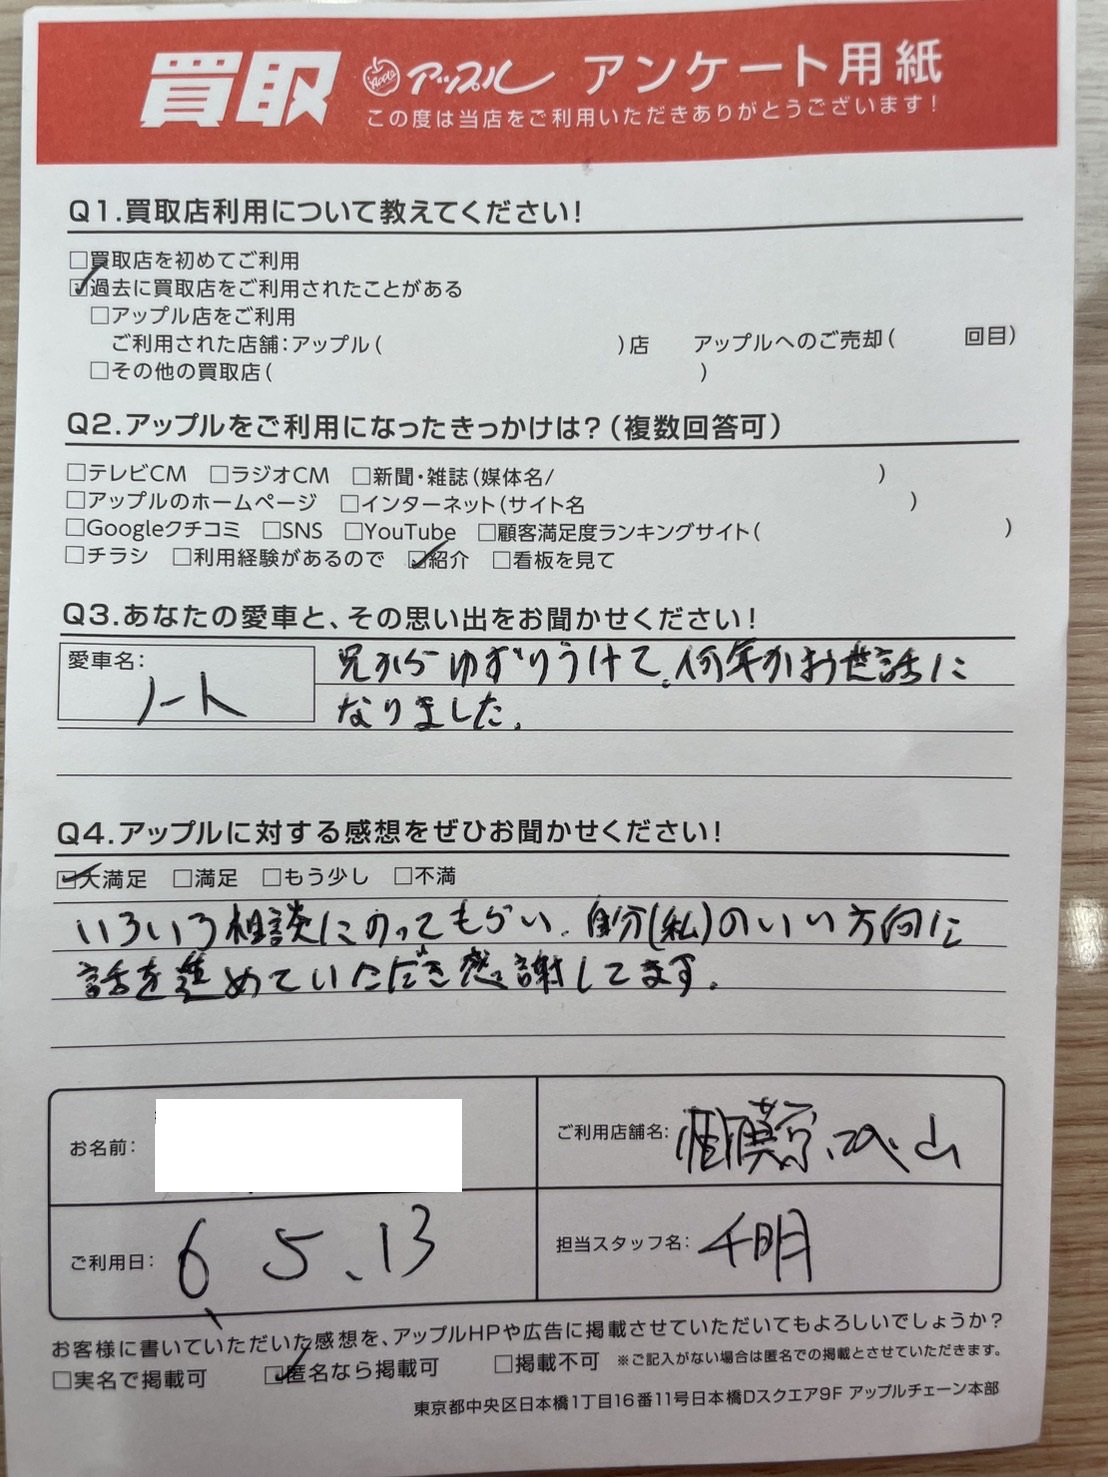 買取 Apple アップル アンケート用紙
この度は当店をご利用いただきありがとうございます!
Q1.買取店利用について教えてください!
□買取店を初めてご利用
☑過去に買取店をご利用されたことがある
□アップル店をご利用
ご利用された店舗:アップル( )店 アップルへのご売却( 回目)
□その他の買取店( )
Q2.アップルをご利用になったきっかけは?(複数回答可)
□テレビCM □ラジオCM □新聞・雑誌(媒体名/ )
□アップルのホームページ □インターネット(サイト名 )
□Googleクチコミ □SNS □YouTube □顧客満足度ランキングサイト( )
□チラシ □利用経験があるので ☑紹介 □看板を見て
Q3.あなたの愛車と、その思い出をお聞かせください!
愛車名: ノート
兄からゆずりうけて、何年かお世話に
なりました。
Q4.アップルに対する感想をぜひお聞かせください!
☑大満足 □満足 □もう少し □不満
いろいろ相談にのってもらい、自分(私)のいい方向に
話を進めていただき感謝してます。
お名前:
ご利用店舗名: 山
ご利用日: 6、5、13
担当スタッフ名: 千明
お客様に書いていただいた感想を、アップルHPや広告に掲載させていただいてもよろしいでしょうか?
□実名で掲載可 ☑匿名なら掲載可 □掲載不可 ※ご記入がない場合は匿名での掲載とさせていただきます。
東京都中央区日本橋1丁目16番11号日本橋Dスクエア9F アップルチェーン本部